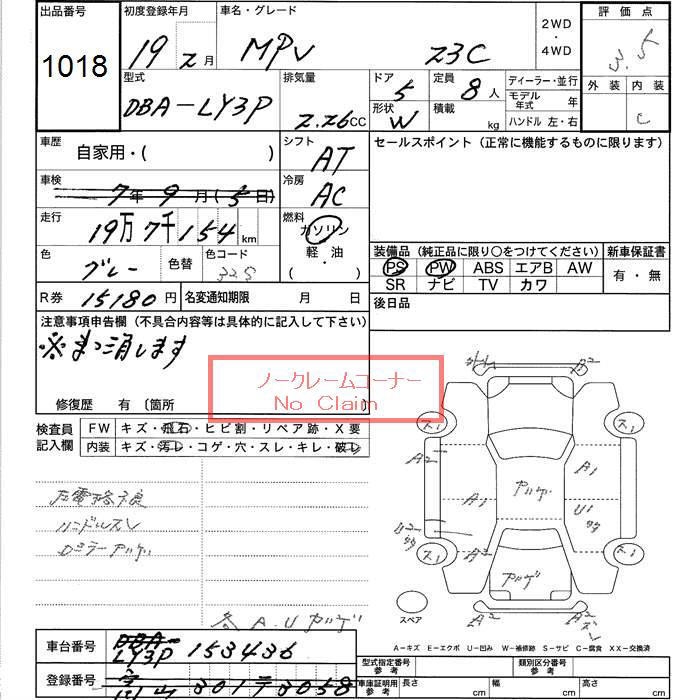 出品番号 初度登録年月 車名・グレード 2WD・4WD 評価点
1018 19 2月 MPV 23C 3.5
型式 排気量 ドア 定員 ディーラー・並行 外装 内装
DBA-LY3P 2.26cc 5 8人 モデル年式 年 C
形状 W 積載 kg ハンドル 左・右
車歴 自家用・( ) シフト AT セールスポイント (正常に機能するものに限ります)
車検 7年9月(5日) 冷房 AC
走行 19万7千154km 燃料 ガソリン 軽・油 ( ・ )
色 グレー 色替 色コード 32S
装備品 (純正品に限り○をつけてください) 新車保証書
PS PW ABS エアB AW 有・無
SR ナビ TV カワ
R券 15180円 名変通知期限 月 日 後日品
注意事項申告欄 (不具合内容等は具体的に記入して下さい)
※まっ消します
ノークレームコーナー
No Claim
修復歴 有 〔箇所
検査員記入欄 FW キズ・飛石・ヒビ割・リペア跡・X要
内装 キズ・汚レ・コゲ・穴・スレ・キレ・破レ
ハンドルスレ
A2
A2 A1
A1 U1
A2
A2 A2
スペア
A-キズ E-エクボ U-凹み W-補修跡 S-サビ C-腐食 XX-交換済
車台番号 DBA- LY3P 153436
型式指定番号 参考 類別区分番号 参考
登録番号 301 テ 3058 車庫証明用 参考 長さ cm 幅 cm 高さ cm